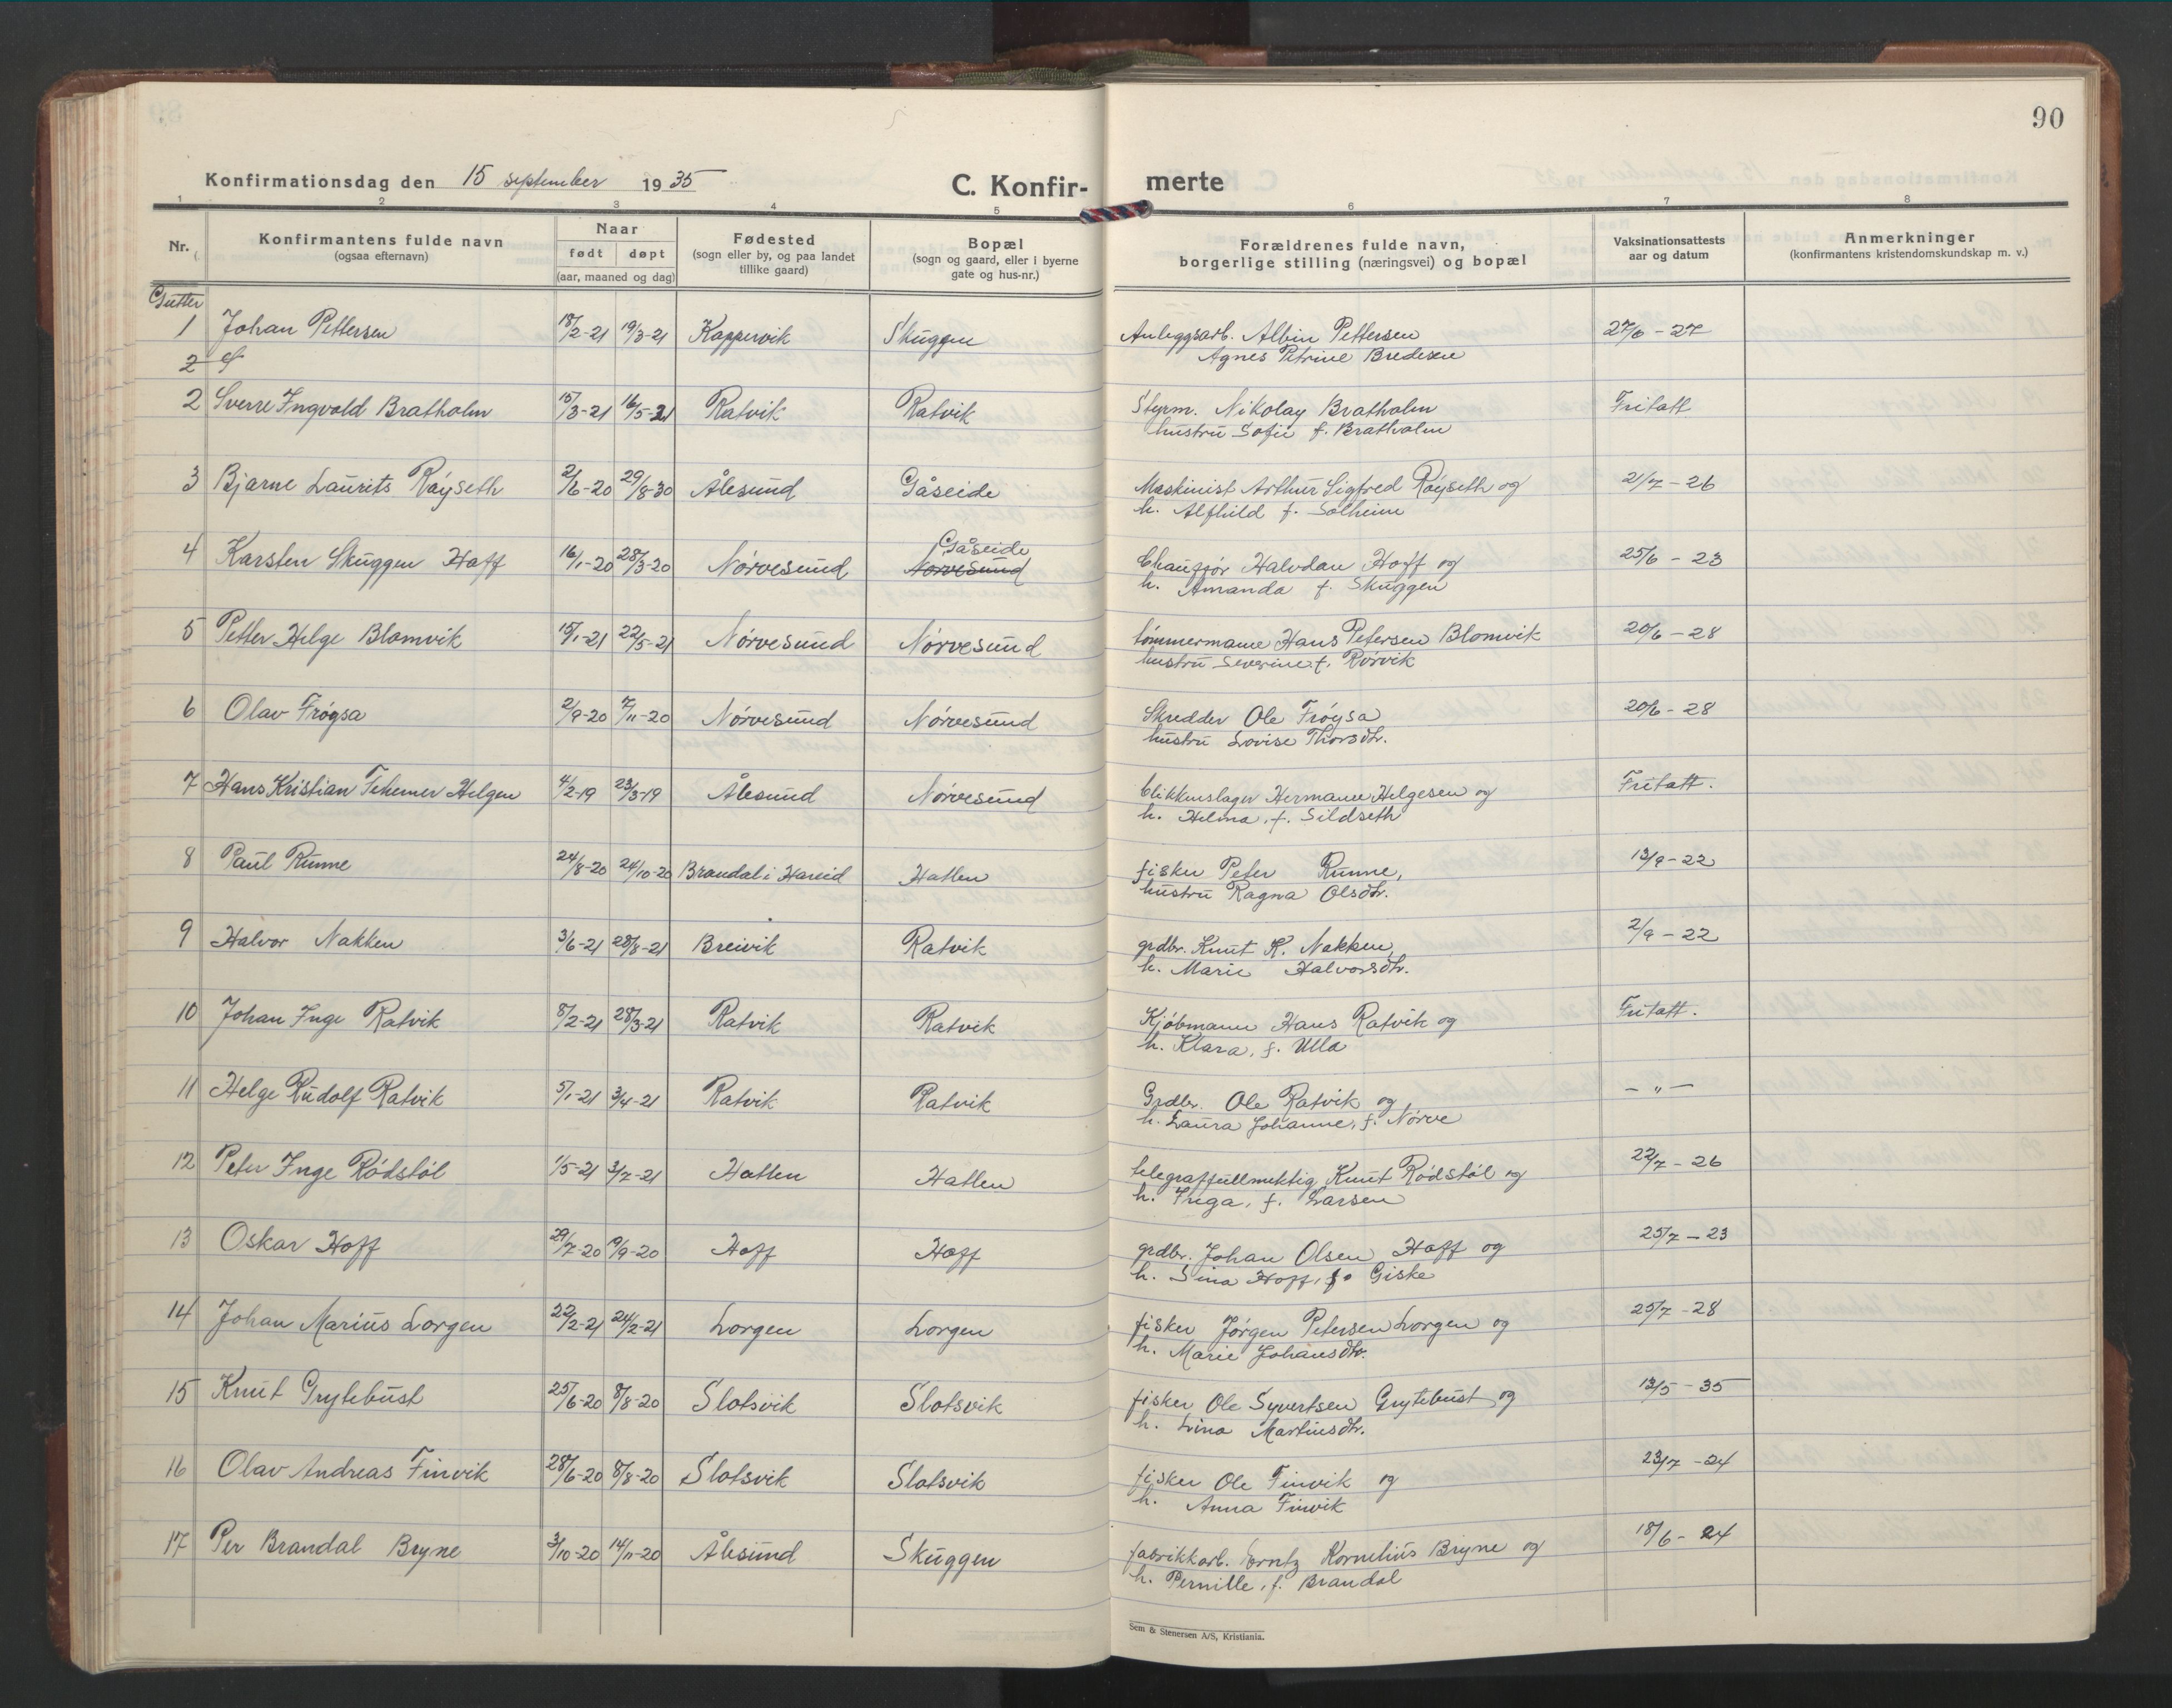 90
Konfirmationsdag den 15 september 1935 C. Konfir- merte
1 2 3 4 5 6 7 8
Nr. Konfirmantens fulde navn (ogsaa efternavn) Naar født døpt (aar, maaned og dag) Fødested (sogn eller by, og paa landet tillike gaard) Bopæl (sogn og gaard, eller i byerne gate og hus-nr.) Forældrenes fulde navn, borgerlige stilling (næringsvei) og bopæl Vaksinationsattests aar og datum Anmerkninger (konfirmantens kristendomskundskap m. v.)
Gutter
1 Johan Pettersen 18/2-21 19/3-21 Kappervik Skuggen Anleggsarb. Albin Pettersen 27/6-27
Agnes Petrine Bredesen
2
2 Sverre Ingvald Bratholm 15/3-21 16/5-21 Ratvik Ratvik Styrm. Nikolay Bratholm Fritatt
hustru Sofie f. Bratholm
3 Bjarne Laurits Røyseth 2/6-20 29/8-30 Ålesund Gåseide Maskinist Arthur Sigfred Røyseth og 21/7-26
h. Alfhild f. Solheim
4 Karsten Skuggen Hoff 16/1-20 28/3-20 Nørvesund Gåseide Nørvesund Chauffør Halvdan Hoff og 25/6-23
h. Amanda f. Skuggen
5 Petter Helge Blomvik 15/1-21 22/5-21 Nørvesund Nørvesund tømmermann Hans Petersen Blomvik 20/6-28
hustru Severine f. Rørvik
6 Olav Frøysa 2/9-20 7/11-20 Nørvesund Nørvesund Skredder Ole Frøysa 20/6-28
hustru Lovise Thorsdtr.
7 Hans Kristian Helgen 4/2-19 23/3-19 Ålesund Nørvesund blikkenslager Hermann Helgesen og Fritatt.
h. Helma, f. Sildseth
8 Paul Runne 24/8-20 24/10-20 Brandal i Hareid Hatlen fisker Peter Runne, 13/9-22
hustru Ragna Olsdtr.
9 Halvor Nakken 3/6-21 28/8-21 Breivik Ratvik grdbr. Knut K. Nakken, 2/9-22
h. Marie Halvorsdtr.
10 Johan Inge Ratvik 8/2-21 28/3-21 Ratvik Ratvik Kjøbmann Hans Ratvik og Fritatt.
h. Klara, f. Ulla
11 Helge Rudolf Ratvik 5/1-21 3/4-21 Ratvik Ratvik Grdbr. Ole Ratvik og - " -
h. Laura Johanne, f. Nørve
12 Peter Inge Rødstøl 1/5-21 3/7-21 Hatlen Hatlen telegraffullmektig Knut Rødstøl og 22/7-26
h. Inga, f. Larsen
13 Oskar Hoff 29/7-20 19/9-20 Hoff Hoff grdbr. Johan Olsen Hoff og 25/7-23
h. Sina Hoff, f. Giske
14 Johan Marius Lorgen 22/2-21 24/2-21 Lorgen Lorgen fisker Jørgen Petersen Lorgen og 25/7-28
h. Marie Johansdtr.
15 Knut Grytebust 25/6-20 8/8-20 Slotsvik Slotsvik fisker Ole Syvertsen Grytebust og 13/5-35
h. Lina Martinsdtr.
16 Olav Andreas Finvik 28/6-20 8/8-20 Slotsvik Slotsvik fisker Ole Finvik og 23/7-24
h. Anna Finvik
17 Per Brandal Bryne 3/10-20 14/11-20 Ålesund Skuggen fabrikkarb. Kornelius Bryne og 18/6-24
h. Pernille, f. Brandal
Sem & Stenersen A/S, Kristiania.